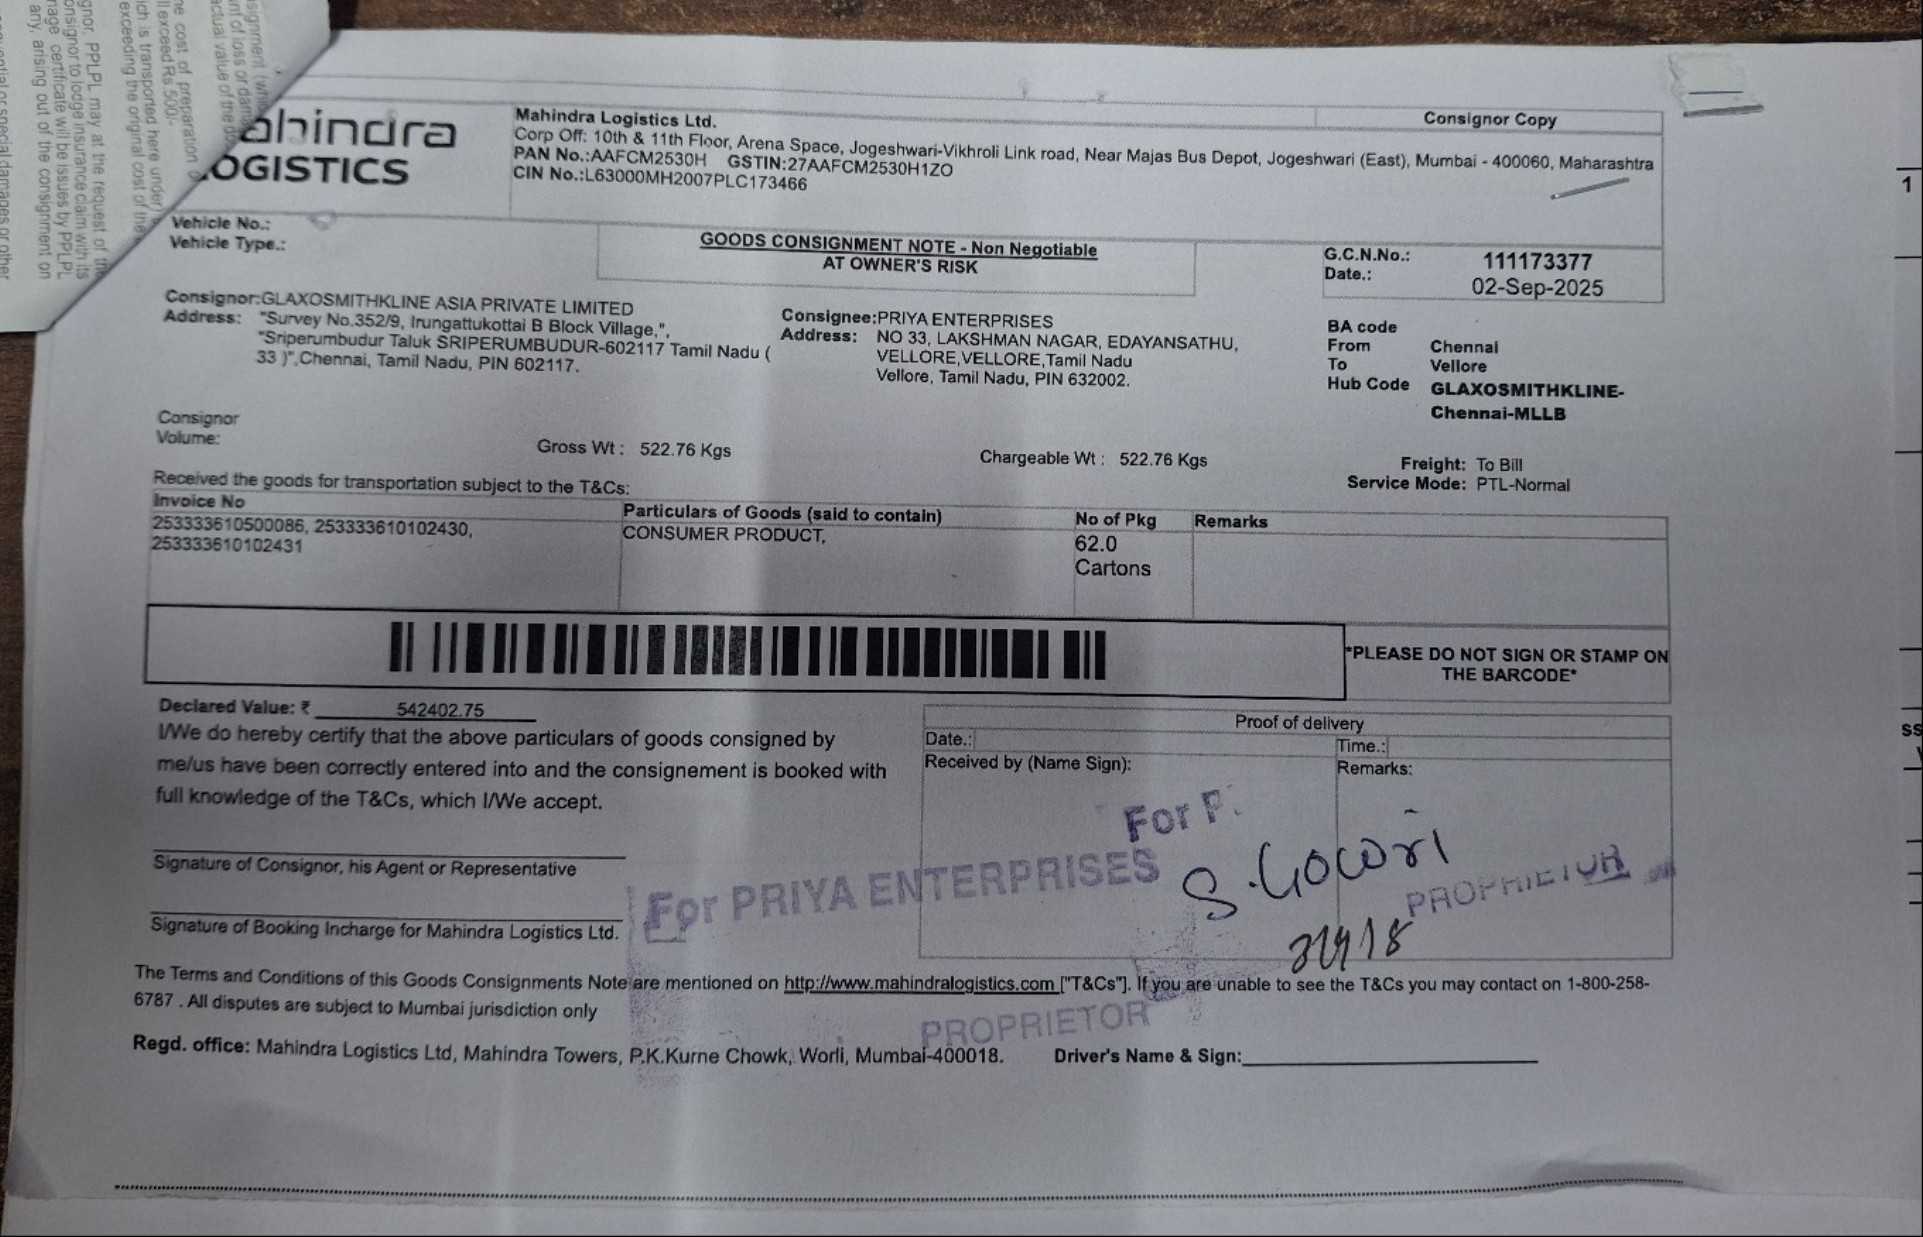 signment (wh
nt of loss or dama
actual value of the do
he cost of preparation
ll exceed Rs.500/-
ich is transported here under)
exceeding the original cost of the
gnor, PPLPL may at the request of th
onsignor to lodge insurance claim with its
nage certificate will be issues by PPLPL
any, arising out of the consignment on
special damages or other
ahindra
LOGISTICS
Mahindra Logistics Ltd.
Corp Off: 10th & 11th Floor, Arena Space, Jogeshwari-Vikhroli Link road, Near Majas Bus Depot, Jogeshwari (East), Mumbai - 400060, Maharashtra
PAN No.:AAFCM2530H GSTIN:27AAFCM2530H1ZO
CIN No.:L63000MH2007PLC173466
Consignor Copy
Vehicle No.:
Vehicle Type.:
GOODS CONSIGNMENT NOTE - Non Negotiable
AT OWNER'S RISK
G.C.N.No.: 111173377
Date.: 02-Sep-2025
Consignor:GLAXOSMITHKLINE ASIA PRIVATE LIMITED
Address: "Survey No.352/9, Irungattukottai B Block Village,",
"Sriperumbudur Taluk SRIPERUMBUDUR-602117 Tamil Nadu (
33 )",Chennai, Tamil Nadu, PIN 602117.
Consignee:PRIYA ENTERPRISES
Address: NO 33, LAKSHMAN NAGAR, EDAYANSATHU,
VELLORE,VELLORE,Tamil Nadu
Vellore, Tamil Nadu, PIN 632002.
BA code
From Chennai
To Vellore
Hub Code GLAXOSMITHKLINE-
Chennai-MLLB
Consignor
Volume:
Gross Wt : 522.76 Kgs
Chargeable Wt : 522.76 Kgs
Freight: To Bill
Service Mode: PTL-Normal
Received the goods for transportation subject to the T&Cs:
Invoice No
253333610500086, 253333610102430,
253333610102431
Particulars of Goods (said to contain)
CONSUMER PRODUCT,
No of Pkg
62.0
Cartons
Remarks
*PLEASE DO NOT SIGN OR STAMP ON
THE BARCODE*
Declared Value: ₹ 542402.75
I/We do hereby certify that the above particulars of goods consigned by
me/us have been correctly entered into and the consignement is booked with
full knowledge of the T&Cs, which I/We accept.
Proof of delivery
Date.:
Time.:
Received by (Name Sign):
Remarks:
For P.
S. Gowri
PROPRIETOR
Signature of Consignor, his Agent or Representative
For PRIYA ENTERPRISES
Signature of Booking Incharge for Mahindra Logistics Ltd.
The Terms and Conditions of this Goods Consignments Note are mentioned on http://www.mahindralogistics.com ["T&Cs"]. If you are unable to see the T&Cs you may contact on 1-800-258-
6787 . All disputes are subject to Mumbai jurisdiction only
PROPRIETOR
Regd. office: Mahindra Logistics Ltd, Mahindra Towers, P.K.Kurne Chowk, Worli, Mumbai-400018.
Driver's Name & Sign:
1
ss